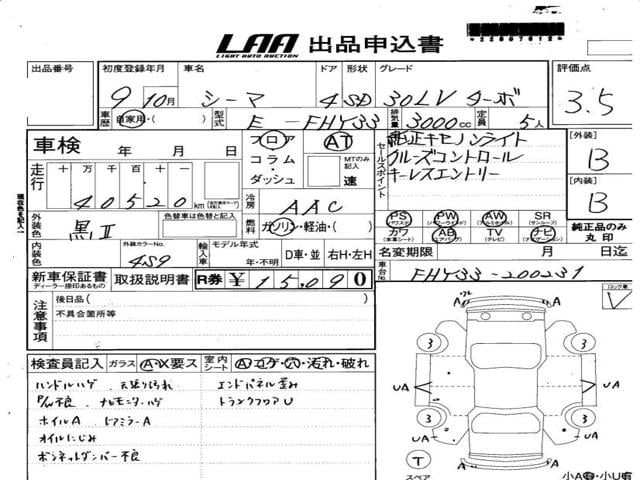 LAA 出品申込書
LIGHT AUTO AUCTION
出品番号 初度登録年月 車名 ドア 形状 グレード 評価点
9年10月 シーマ 4 SD 30LV ターボ 3.5
車歴 自家用・( ) 型式 E-FHY33 排気量 3000cc 定員 5人
車検 年 月 日
フロア コラム・ダッシュ
AT
MTのみ記入 速
セールスポイント
純正キセノンライト
クルーズコントロール
キーレスエントリー
[外装] B
[内装] B
走行 十万 万 千 百 十
40520 km
冷房 AAC
燃料 ガソリン・軽油・( )
外装色 黒II
色替車は色替と記入
PS PW AW SR
(パワステ) (パワーウインド) (アルミホイル) (サンルーフ)
カワ AB TV ナビ
(本革シート) (エアバッグ) (テレビ) (ナビゲーション)
純正品のみ丸印
内装色
外装カラーNo.
459
輸入車 モデル年式 年・不明 D車・並 右H・左H
名変期限 月 日迄
新車保証書 取扱説明書 R券 ¥ 15,090
ディーラー捺印あるもの
車台No. FHY33-200231
注意事項
後日品( )
不具合箇所等
検査員記入 ガラス A・X要ス 室内シート A コゲ・穴・汚れ・破れ
ハンドルハゲ 天張り汚れ エンドパネル歪み
P/W不良 ナビモニターハゲ トランクフロアU
ホイルA ドアミラーA
オイルにじみ
ボンネットダンパー不良
A A
3 3
UA UA
3 3
UA UA
T
スペア
A A
小A有・小U有